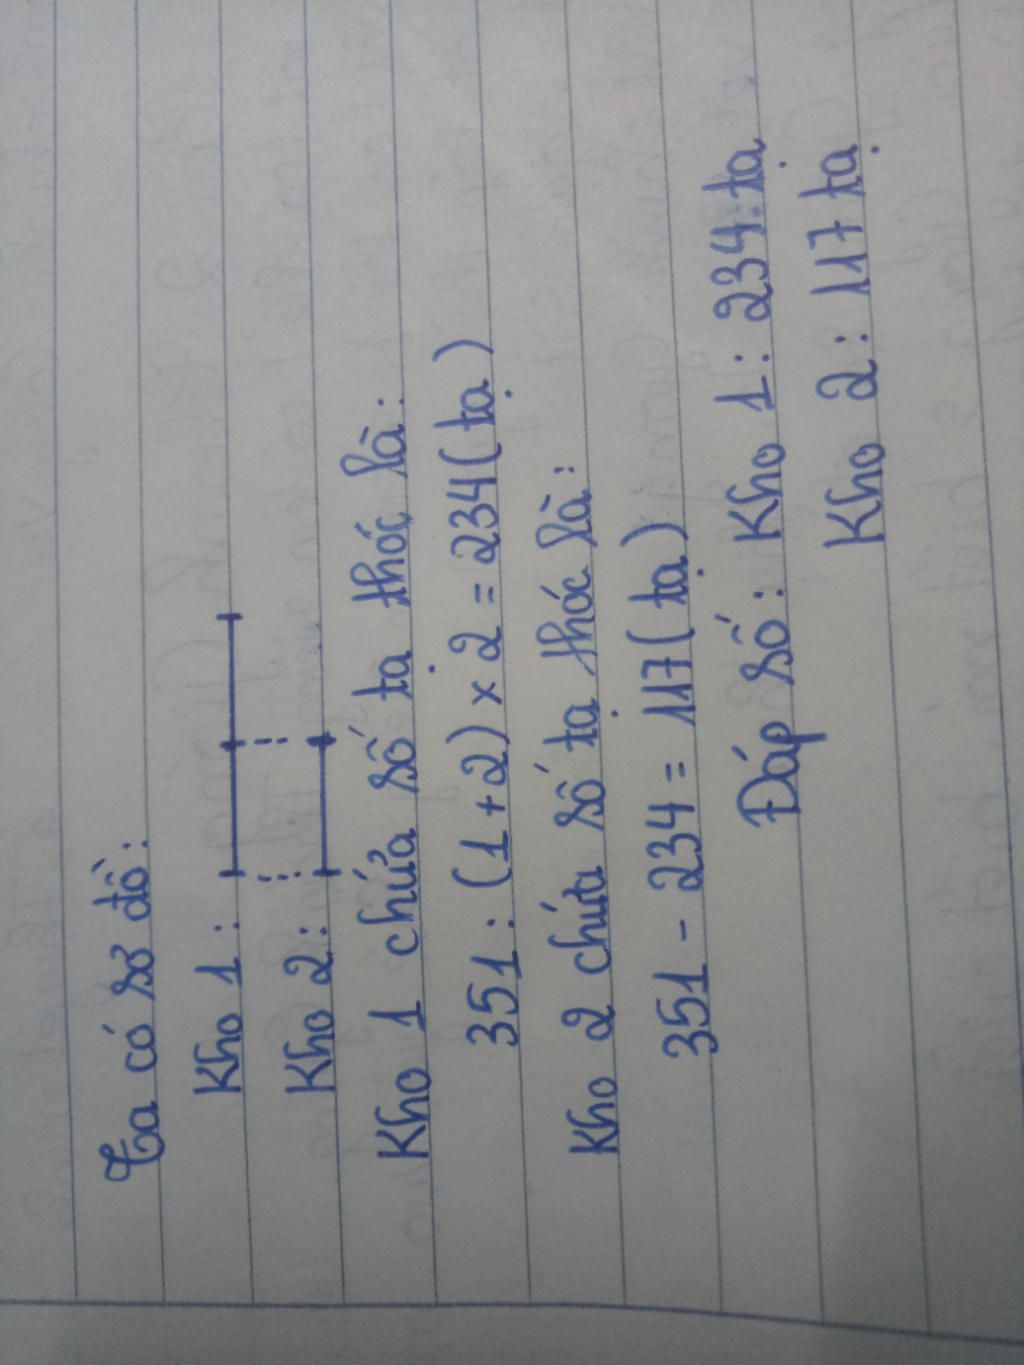 Ta có sơ đồ:
Kho 1:
Kho 2:
Kho 1 chứa số tạ thóc là:
351 : (1+2) x 2 = 234 (tạ)
Kho 2 chứa số tạ thóc là:
351 - 234 = 117 (tạ)
Đáp số: Kho 1: 234 tạ
Kho 2: 117 tạ